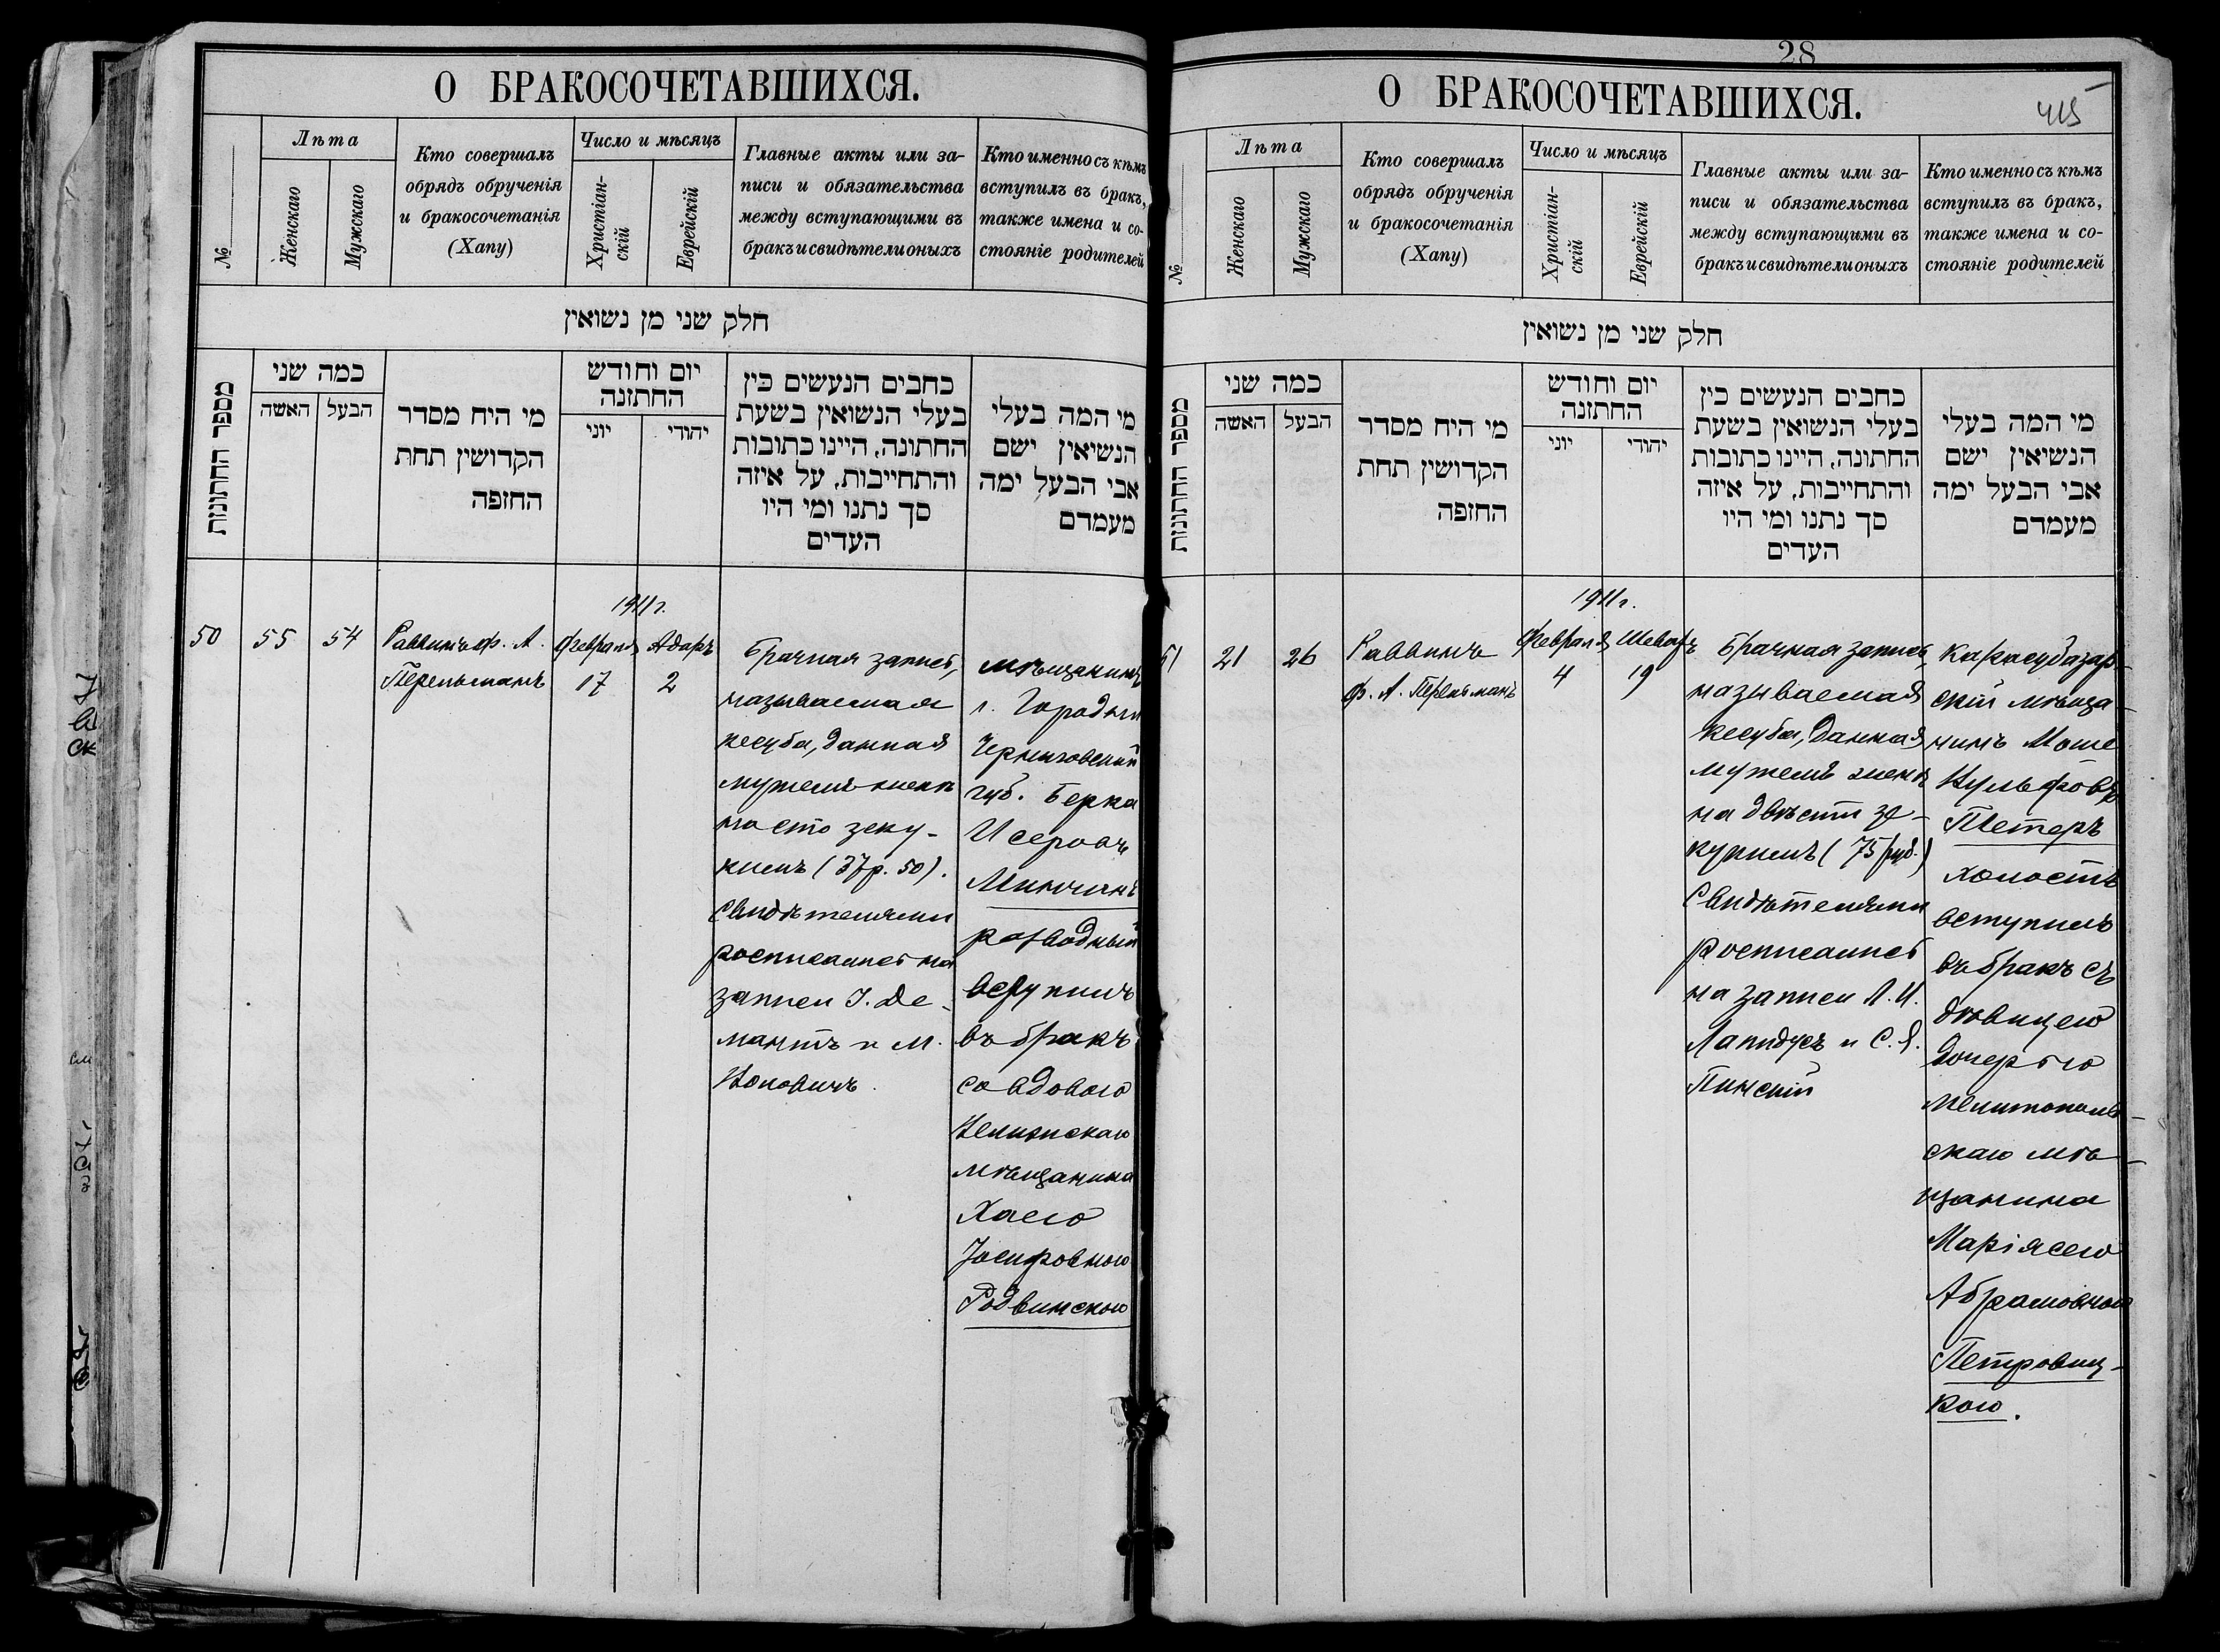 О БРАКОСОЧЕТАВШИХСЯ.
№
Лѣта
Женскаго
Мужскаго
Кто совершалъ
обрядъ обрученія
и бракосочетанія
(Хапу)
Число и мѣсяцъ
Христіан-
скій
Еврейскій
Главные акты или за-
писи и обязательства
между вступающими въ
бракъ и свидѣтели оныхъ
Кто именно съ кѣмъ
вступилъ въ бракъ,
также имена и со-
стояніе родителей
חלק שני מן נשואין
מספר החתונות
כמה שני
האשה
הבעל
מי היח מסדר
הקדושין תחת
החזפה
יום וחודש
החתזנה
יוני
יהודי
כחבים הנעשים כין
בעלי הנשואין בשעת
החתונה, היינו כתובות
והתחייבות, על איזה
סך נתנו ומי היו
העדים
מי המה בעלי
הנשיאין ישם
אבי הבעל ימה
מעמדם
50
55
54
Раввинъ Ф. А.
Перельманъ
1911 г.
Февраля
17
Адаръ
2
Брачная запись,
называемая
кесуба, данная
мужемъ женѣ
на сто зеку-
кимъ (37 р. 50).
Свидѣтелями
росписались на
записи І. Де-
мантъ и М.
мѣщанинъ
г. Городни
Черниговской
губ. Берка
Исеровъ
Минчинъ
разводный
вступилъ
въ бракъ
со вдовою
мѣщанина
Хаею
Іосифовною
Родвинскою
28
415
О БРАКОСОЧЕТАВШИХСЯ.
№
Лѣта
Женскаго
Мужскаго
Кто совершалъ
обрядъ обрученія
и бракосочетанія
(Хапу)
Число и мѣсяцъ
Христіан-
скій
Еврейскій
Главные акты или за-
писи и обязательства
между вступающими въ
бракъ и свидѣтели оныхъ
Кто именно съ кѣмъ
вступилъ въ бракъ,
также имена и со-
стояніе родителей
חלק שני מן נשואין
מספר החתונות
כמה שני
האשה
הבעל
מי היח מסדר
הקדושין תחת
החזפה
יום וחודש
החתזנה
יוני
יהודי
כחבים הנעשים כין
בעלי הנשואין בשעת
החתונה, היינו כתובות
והתחייבות, על איזה
סך נתנו ומי היו
העדים
מי המה בעלי
הנשיאין ישם
אבי הבעל ימה
מעמדם
51
21
26
Раввинъ
Ф. А. Перельманъ
1911 г.
Февраля
4
Шеватъ
19
Брачная запись,
называемая
кесуба, данная
мужемъ женѣ
на двѣсти зе-
кукимъ (75 руб.)
Свидѣтелями
росписались
на записи Л. И.
Лапидусъ и С. Я.
Пинскій
Карасубазар-
скій мѣща-
нинъ Моше
Вульфовъ
Петеръ
холостъ
вступилъ
въ бракъ съ
дѣвицею
дочерью
мелитополь-
скаго мѣ-
щанина
Маріясею
Абрамовною
Петровиц-
кою.